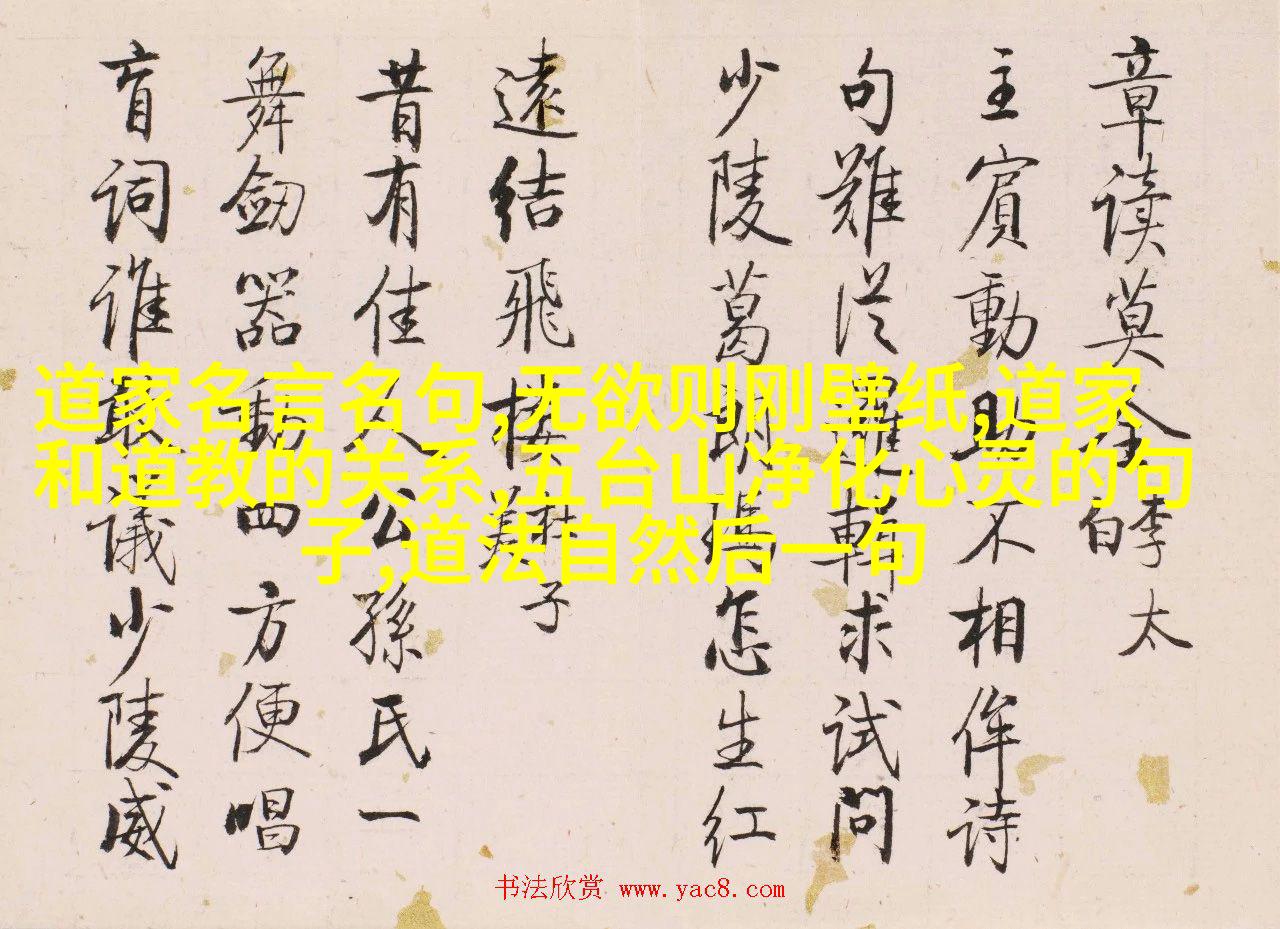 章读莫全李太白
主賓動助不相侔诗
句難從求试问
少陵葛朗瑪怎生红
遠結飛樓杜子美
昔有佳人公孫氏一
舞劒器動四方便唱
盲词谁最議少陵威
道家名言名句,无欲则刚壁纸,道家
和道教的关系,五台山净化心灵的句
子,道法自然后一句
书法欣赏 www.yac8.com